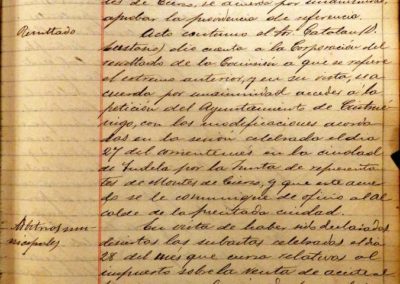 des de Cierzo, se acuerda por unanimidad,
aprobar la providencia de referencia.
Resultado
Acto continuo el Sr. Catalan (D.
Cayetano) dió cuenta a la Corporación del
resultado de la Comisión a que se refiere
el extremo anterior, y en su vista, se a-
cuerda por unanimidad acceder á la
petición del Ayuntamiento de Cintrué-
nigo, con las modificaciones acorda-
das en la sesión celebrada el dia
27 del corriente mes en la ciudad
de Tudela por la Junta de represen-
tes de Montes de Cierzo, y que este acuer-
do se le comunique de oficio al al-
calde de la precitada ciudad.
Arbitrios mu-
nicipales
En vista de haber sido declaradas
desiertas las subastas celebradas el dia
28 del mes que cursa relativas al
impuesto sobre la venta de aceite al